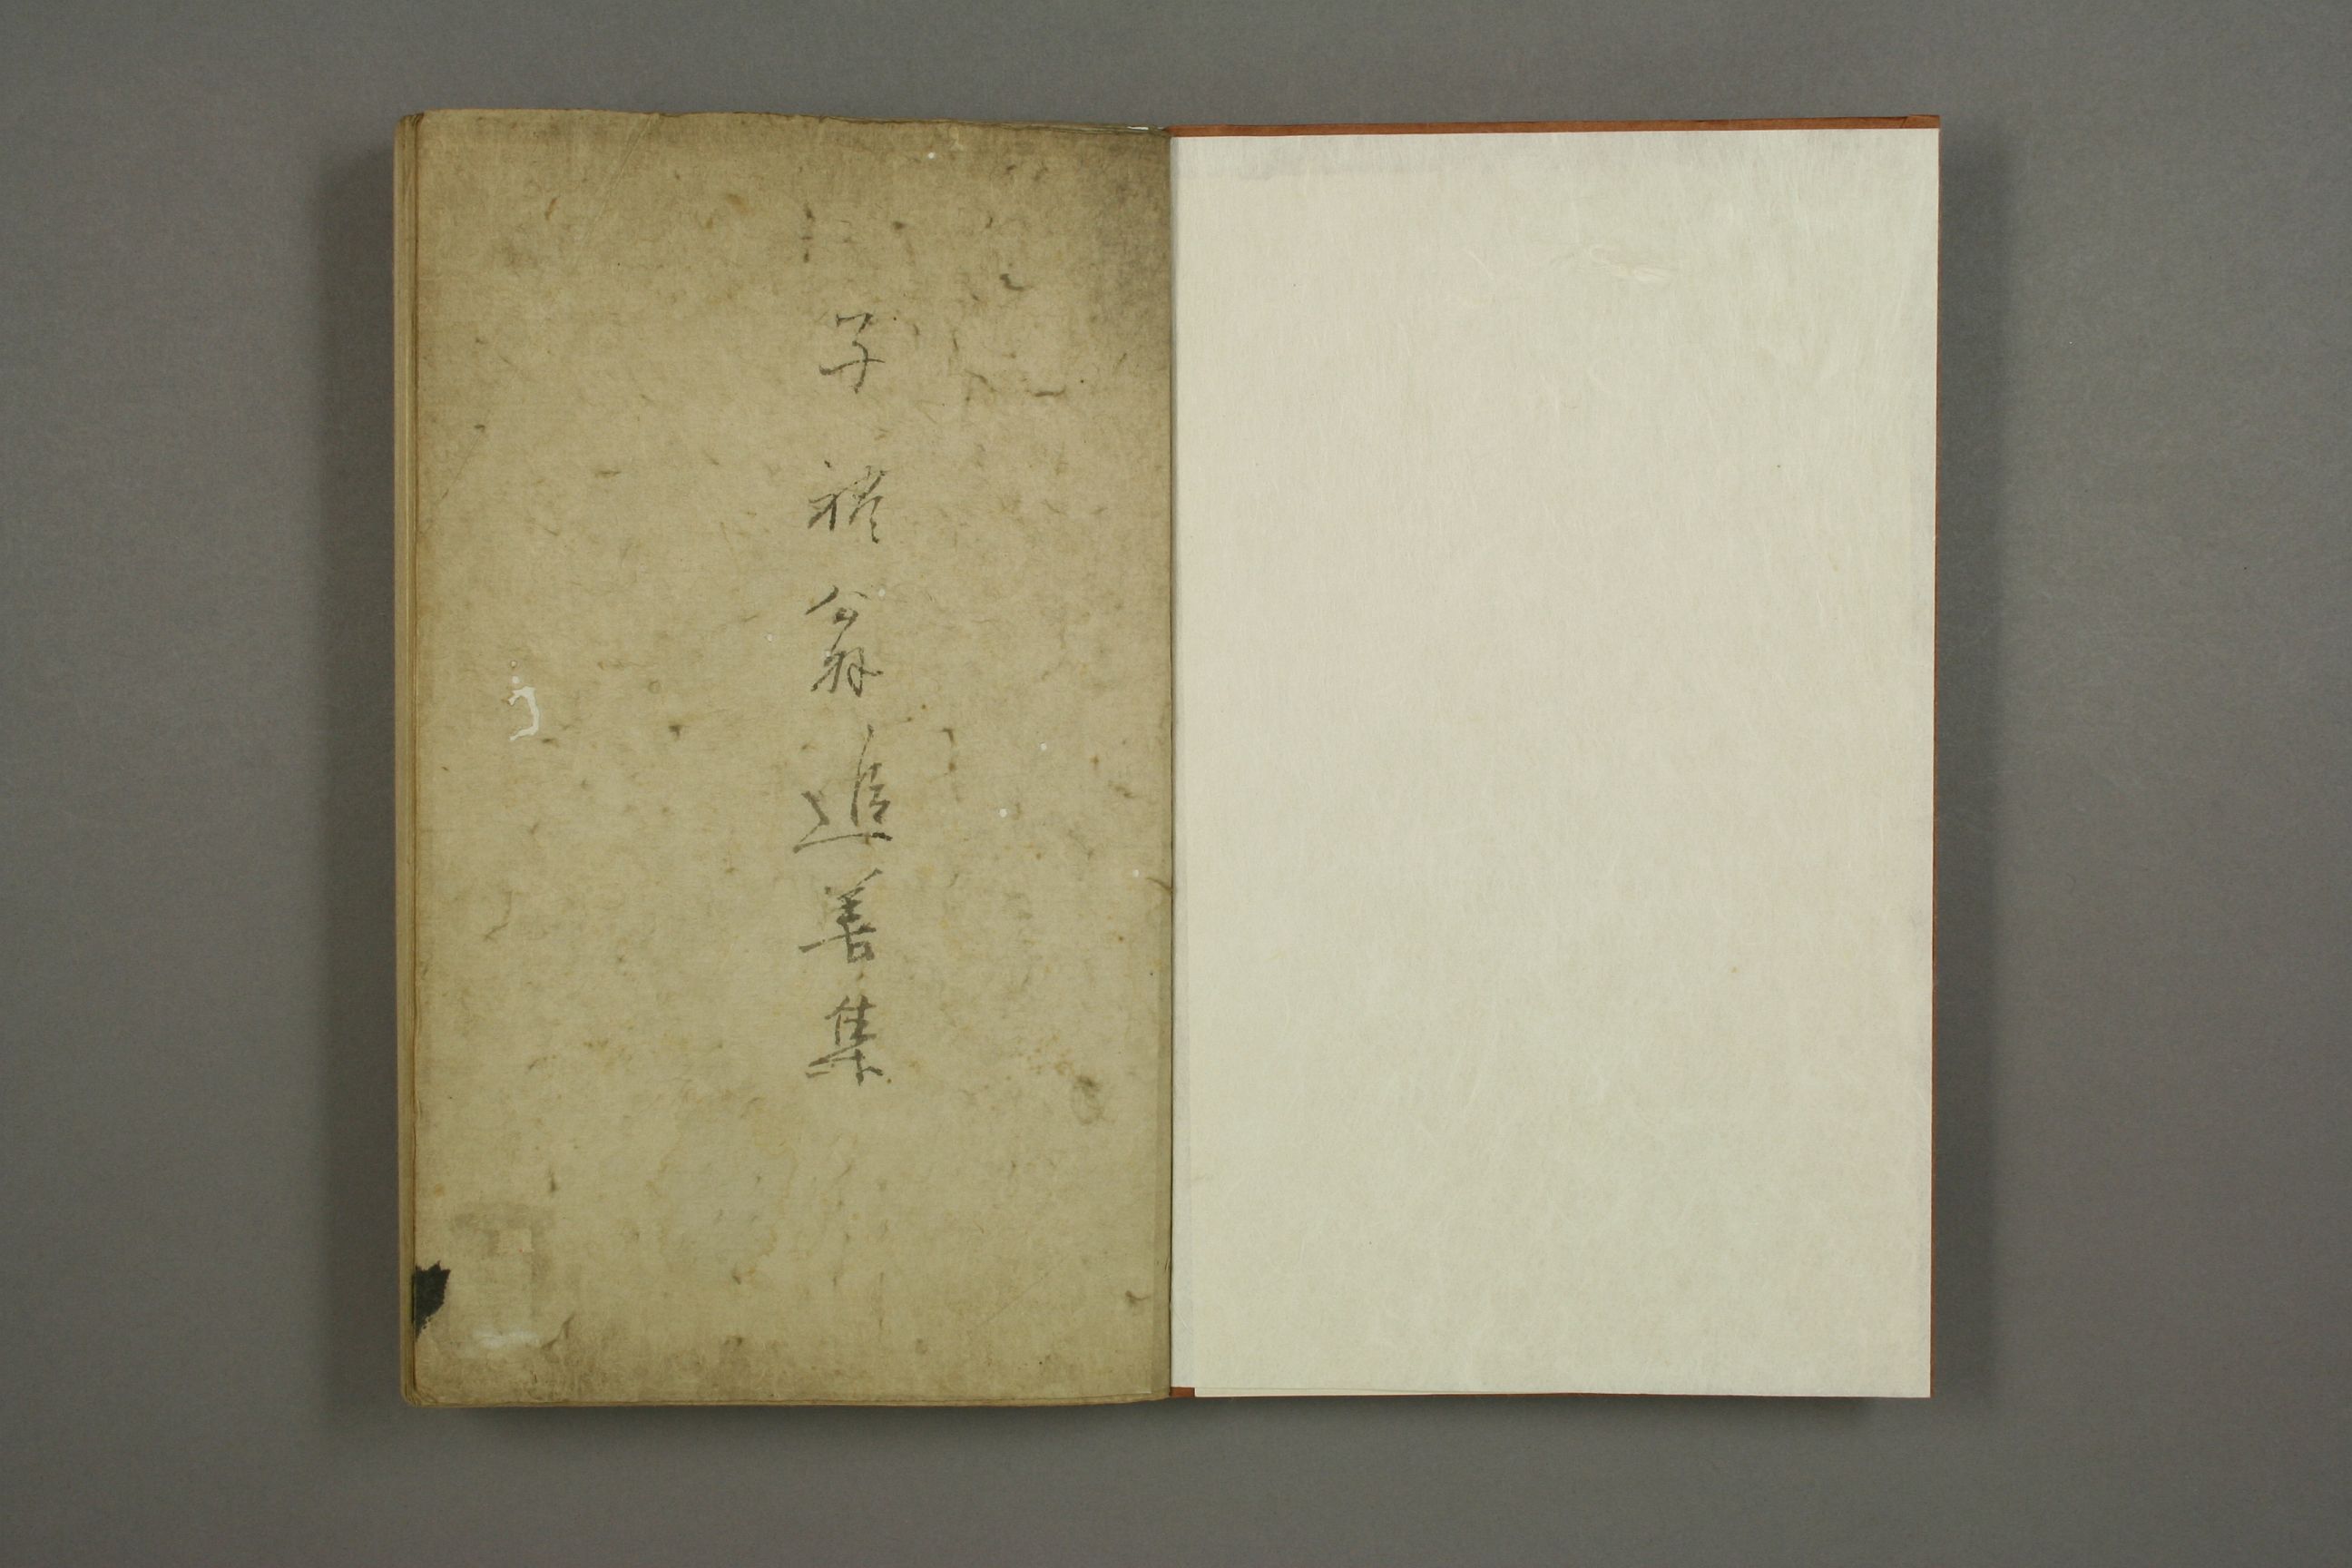 子 翁追善集